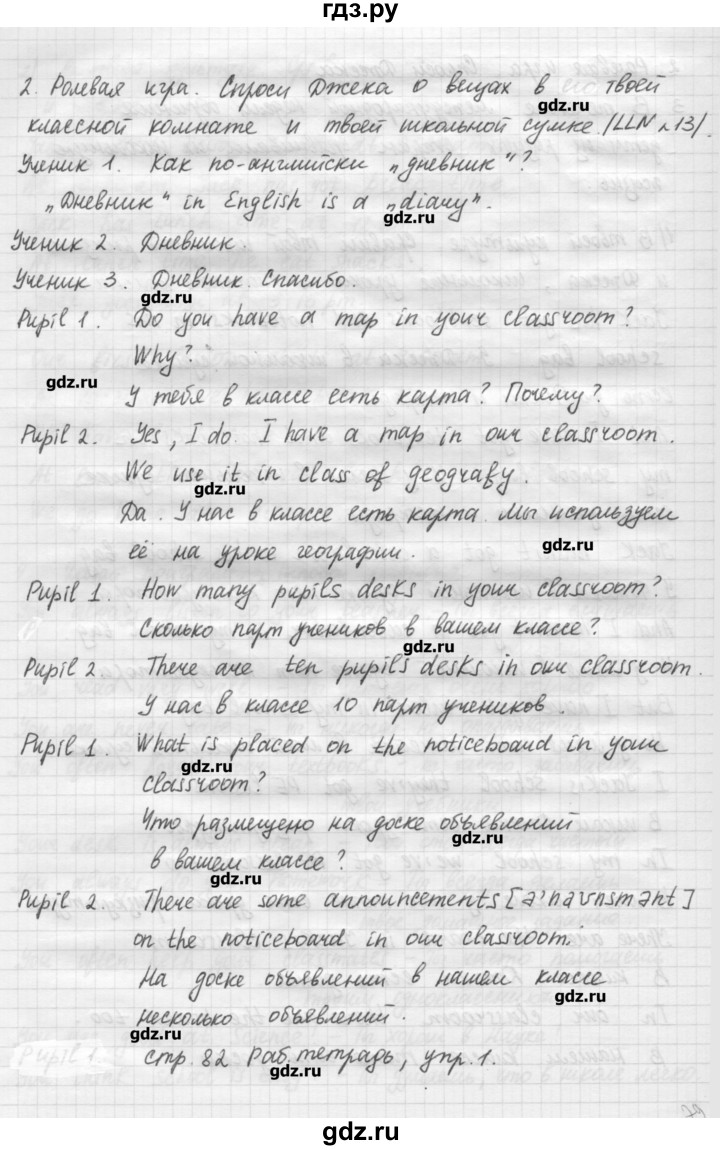 гдз.ру
2. Ролевая игра. Спроси Джека о вещах в твоей
gdz.ru
классной комнате и твоей школьной сумке /LLN 13/.
Ученик 1. Как по-английски „дневник“?
„Дневник“ in English is a „diary“.
gdz.ru
Ученик 2. Дневник.
Ученик 3. Дневник. Спасибо.
gdz.ru
Pupil 1. Do you have a map in your classroom?
Why?
gdz.ru
У тебя в классе есть карта? Почему?
Pupil 2. Yes, I do. I have a map in our classroom.
We use it in class of geografy.
gdz.ru
Да. У нас в классе есть карта. Мы используем
её на уроке географии.
gdz.ru
Pupil 1. How many pupils desks in your classroom?
Сколько парт учеников в вашем классе?
gdz.ru
Pupil 2 There are ten pupils desks in our classroom.
У нас в классе 10 парт учеников.
Pupil 1. What is placed on the noticeboard in your
gdz.ru
classroom?
Что размещено на доске объявлений
gdz.ru
в вашем классе?
gdz.ru
Pupil 2. There are some announcements [ə'naʊnsmənt]
on the noticeboard in our classroom.
На доске объявлений в нашем классе
gdz.ru
несколько объявлений.
gdz.ru
Pupil 1.
стр. 82 Раб. тетрадь, упр. 1.
gdz.ru
gdz.ru